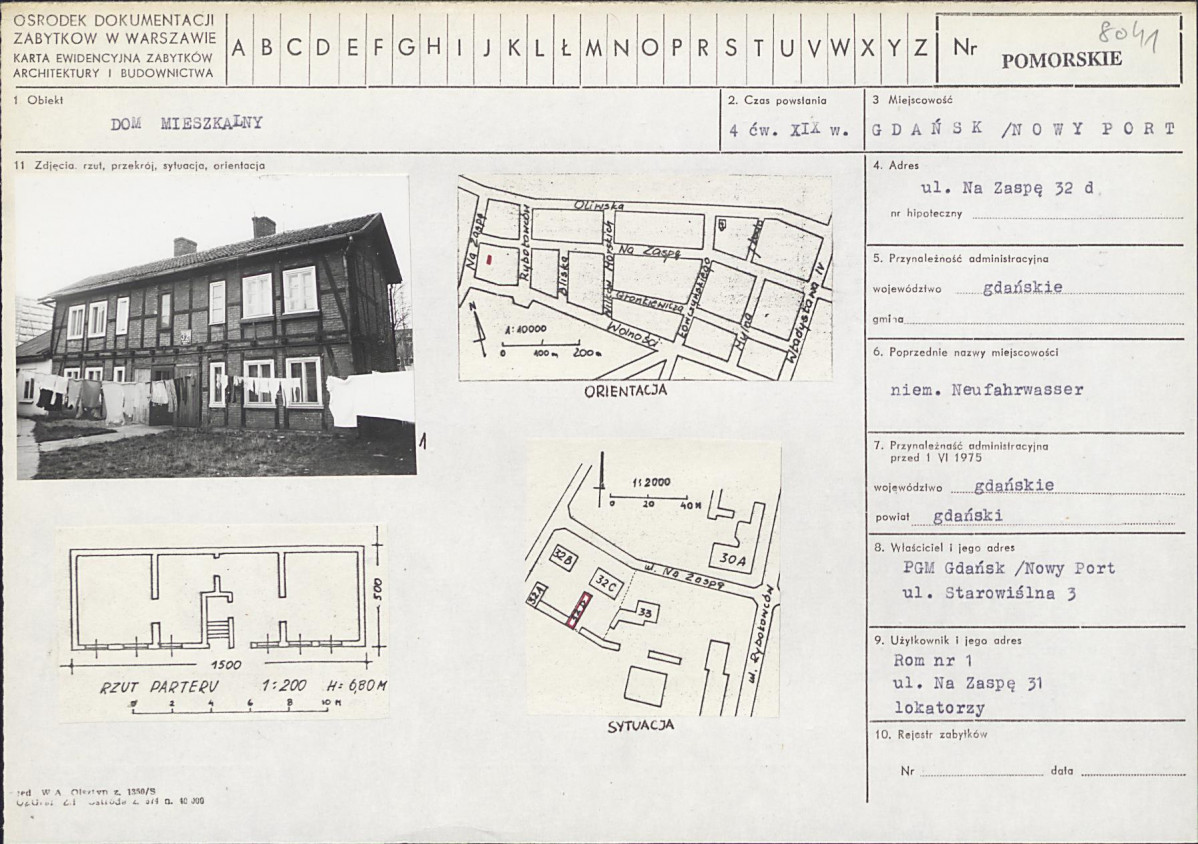 OŚRODEK DOKUMENTACJI
ZABYTKÓW W WARSZAWIE
KARTA EWIDENCYJNA ZABYTKÓW
ARCHITEKTURY I BUDOWNICTWA
A B C D E F G H I J K L Ł M N O P R S T U V W X Y Z
Nr
8041
POMORSKIE
1 Obiekt
DOM MIESZKALNY
2. Czas powstania
4 ćw. XIX w.
3 Miejscowość
GDAŃSK /NOWY PORT
11 Zdjęcia. rzut, przekrój, sytuacja, orientacja
4. Adres
ul. Na Zaspę 32 d
nr hipoteczny
5. Przynależność administracyjna
województwo gdańskie
gmina
6. Poprzednie nazwy miejscowości
niem. Neufahrwasser
7. Przynależność administracyjna
przed 1 VI 1975
województwo gdańskie
powiat gdański
8. Właściciel i jego adres
PGM Gdańsk /Nowy Port
ul. Starowiślna 3
9. Użytkownik i jego adres
Rom nr 1
ul. Na Zaspę 31
lokatorzy
10. Rejestr zabytków
Nr
data
1
Oliwska
Na Zaspę
Rybołowców
Bliska
Morskich
Na Zaspę
Wolności
Władysława IV
N
1:10000
0 100m 200m
ORIENTACJA
1:2000
0 20 40M
30A
32B
32C
32A
32D
33
ul. Na Zaspę
ul. Rybołowców
SYTUACJA
500
1500
RZUT PARTERU 1:200 H=6,80M
0 2 4 6 8 10 M